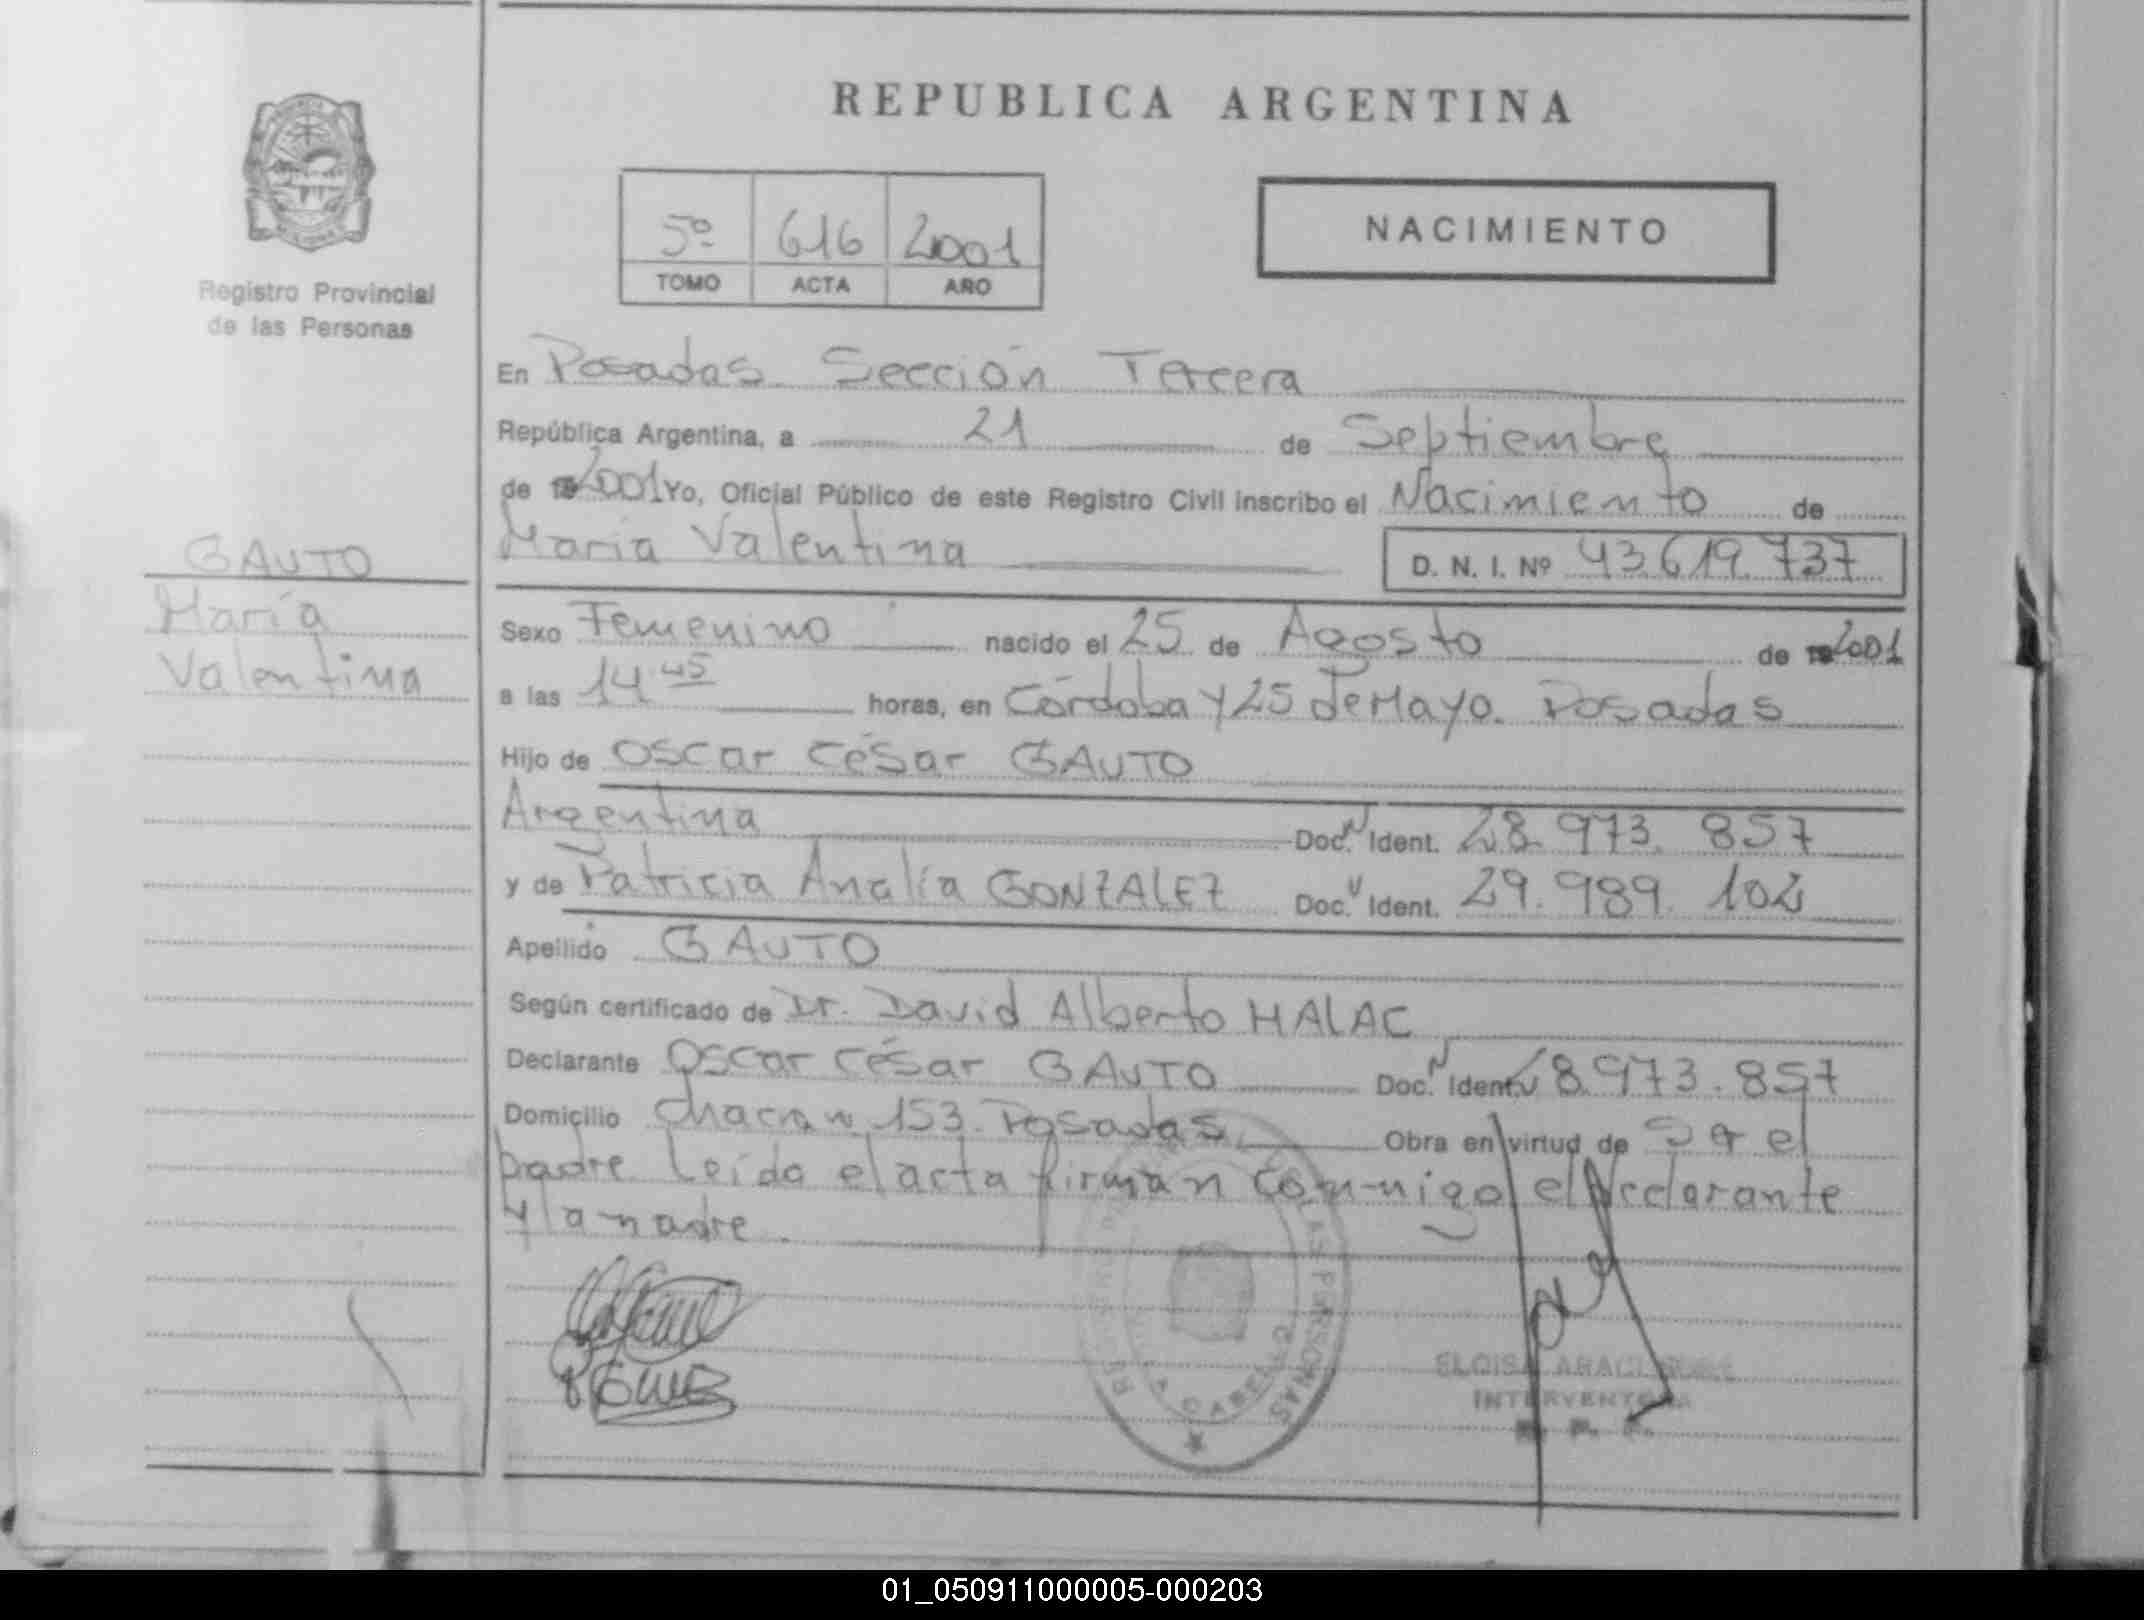 REPUBLICA ARGENTINA
5º 616 2001
TOMO ACTA AÑO
NACIMIENTO
Registro Provincial
de las Personas
En Posadas Sección Tercera
República Argentina, a 21 de Septiembre
de 2001 Yo, Oficial Público de este Registro Civil inscribo el Nacimiento de
María Valentina D. N. I. Nº 43.619.737
GAUTO
María
Valentina
Sexo Femenino nacido el 25 de Agosto de 2001
a las 14 45 horas, en Córdoba y 25 de Mayo. Posadas
Hijo de Oscar César GAUTO
Argentina Doc. N Ident. 28.973.857
y de Patricia Analía GONZALEZ Doc. Ident. 29.989.102
Apellido GAUTO
Según certificado de Dr. David Alberto HALAC
Declarante Oscar César GAUTO Doc. N Ident. 28.973.857
Domicilio 153. Posadas Obra en virtud de Ser el
padre Leído el acta firman conmigo el declarante
y la madre.
PERSONAS
ELOISA
INTERVENTORA
01_050911000005-000203